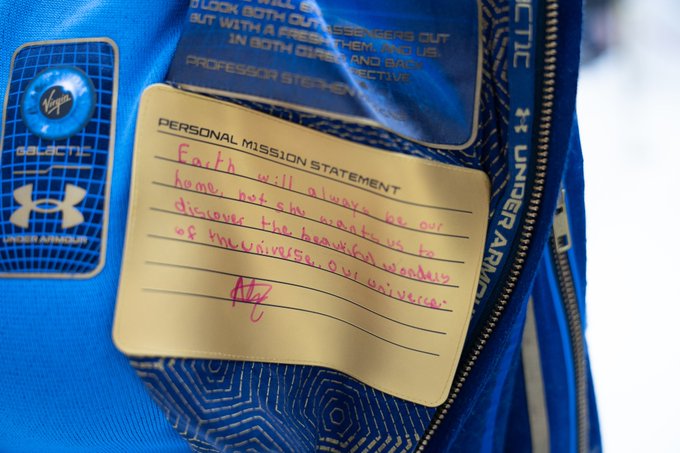 WILL E
O LOOK BOTH OU ASSENGERS OUT
BUT WITH A FRES THEM. AND US.
IN BOTH DIRE AND BACK
PECTIVE
PROFESSOR STEPHE
Virgin
GALACTIC
UNDER ARMOUR
PERSONAL MISSION STATEMENT
Earth will always be our
home, but she wants us to
discover the beautiful wonders
of the universe. Our universe.
ACTIC
UNDER ARMOU